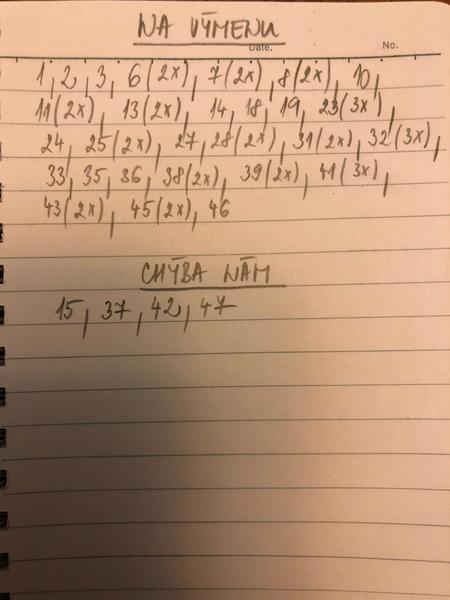 NA VÝMENU
Date.
No.
1, 2, 3, 6(2x), 7(2x), 8(2x), 10,
11(2x), 13(2x), 14, 18, 19, 23(3x),
24, 25(2x), 27, 28(2x), 31(2x), 32(3x),
33, 35, 36, 38(2x), 39(2x), 41(3x),
43(2x), 45(2x), 46
CHÝBA NÁM
15, 37, 42, 47